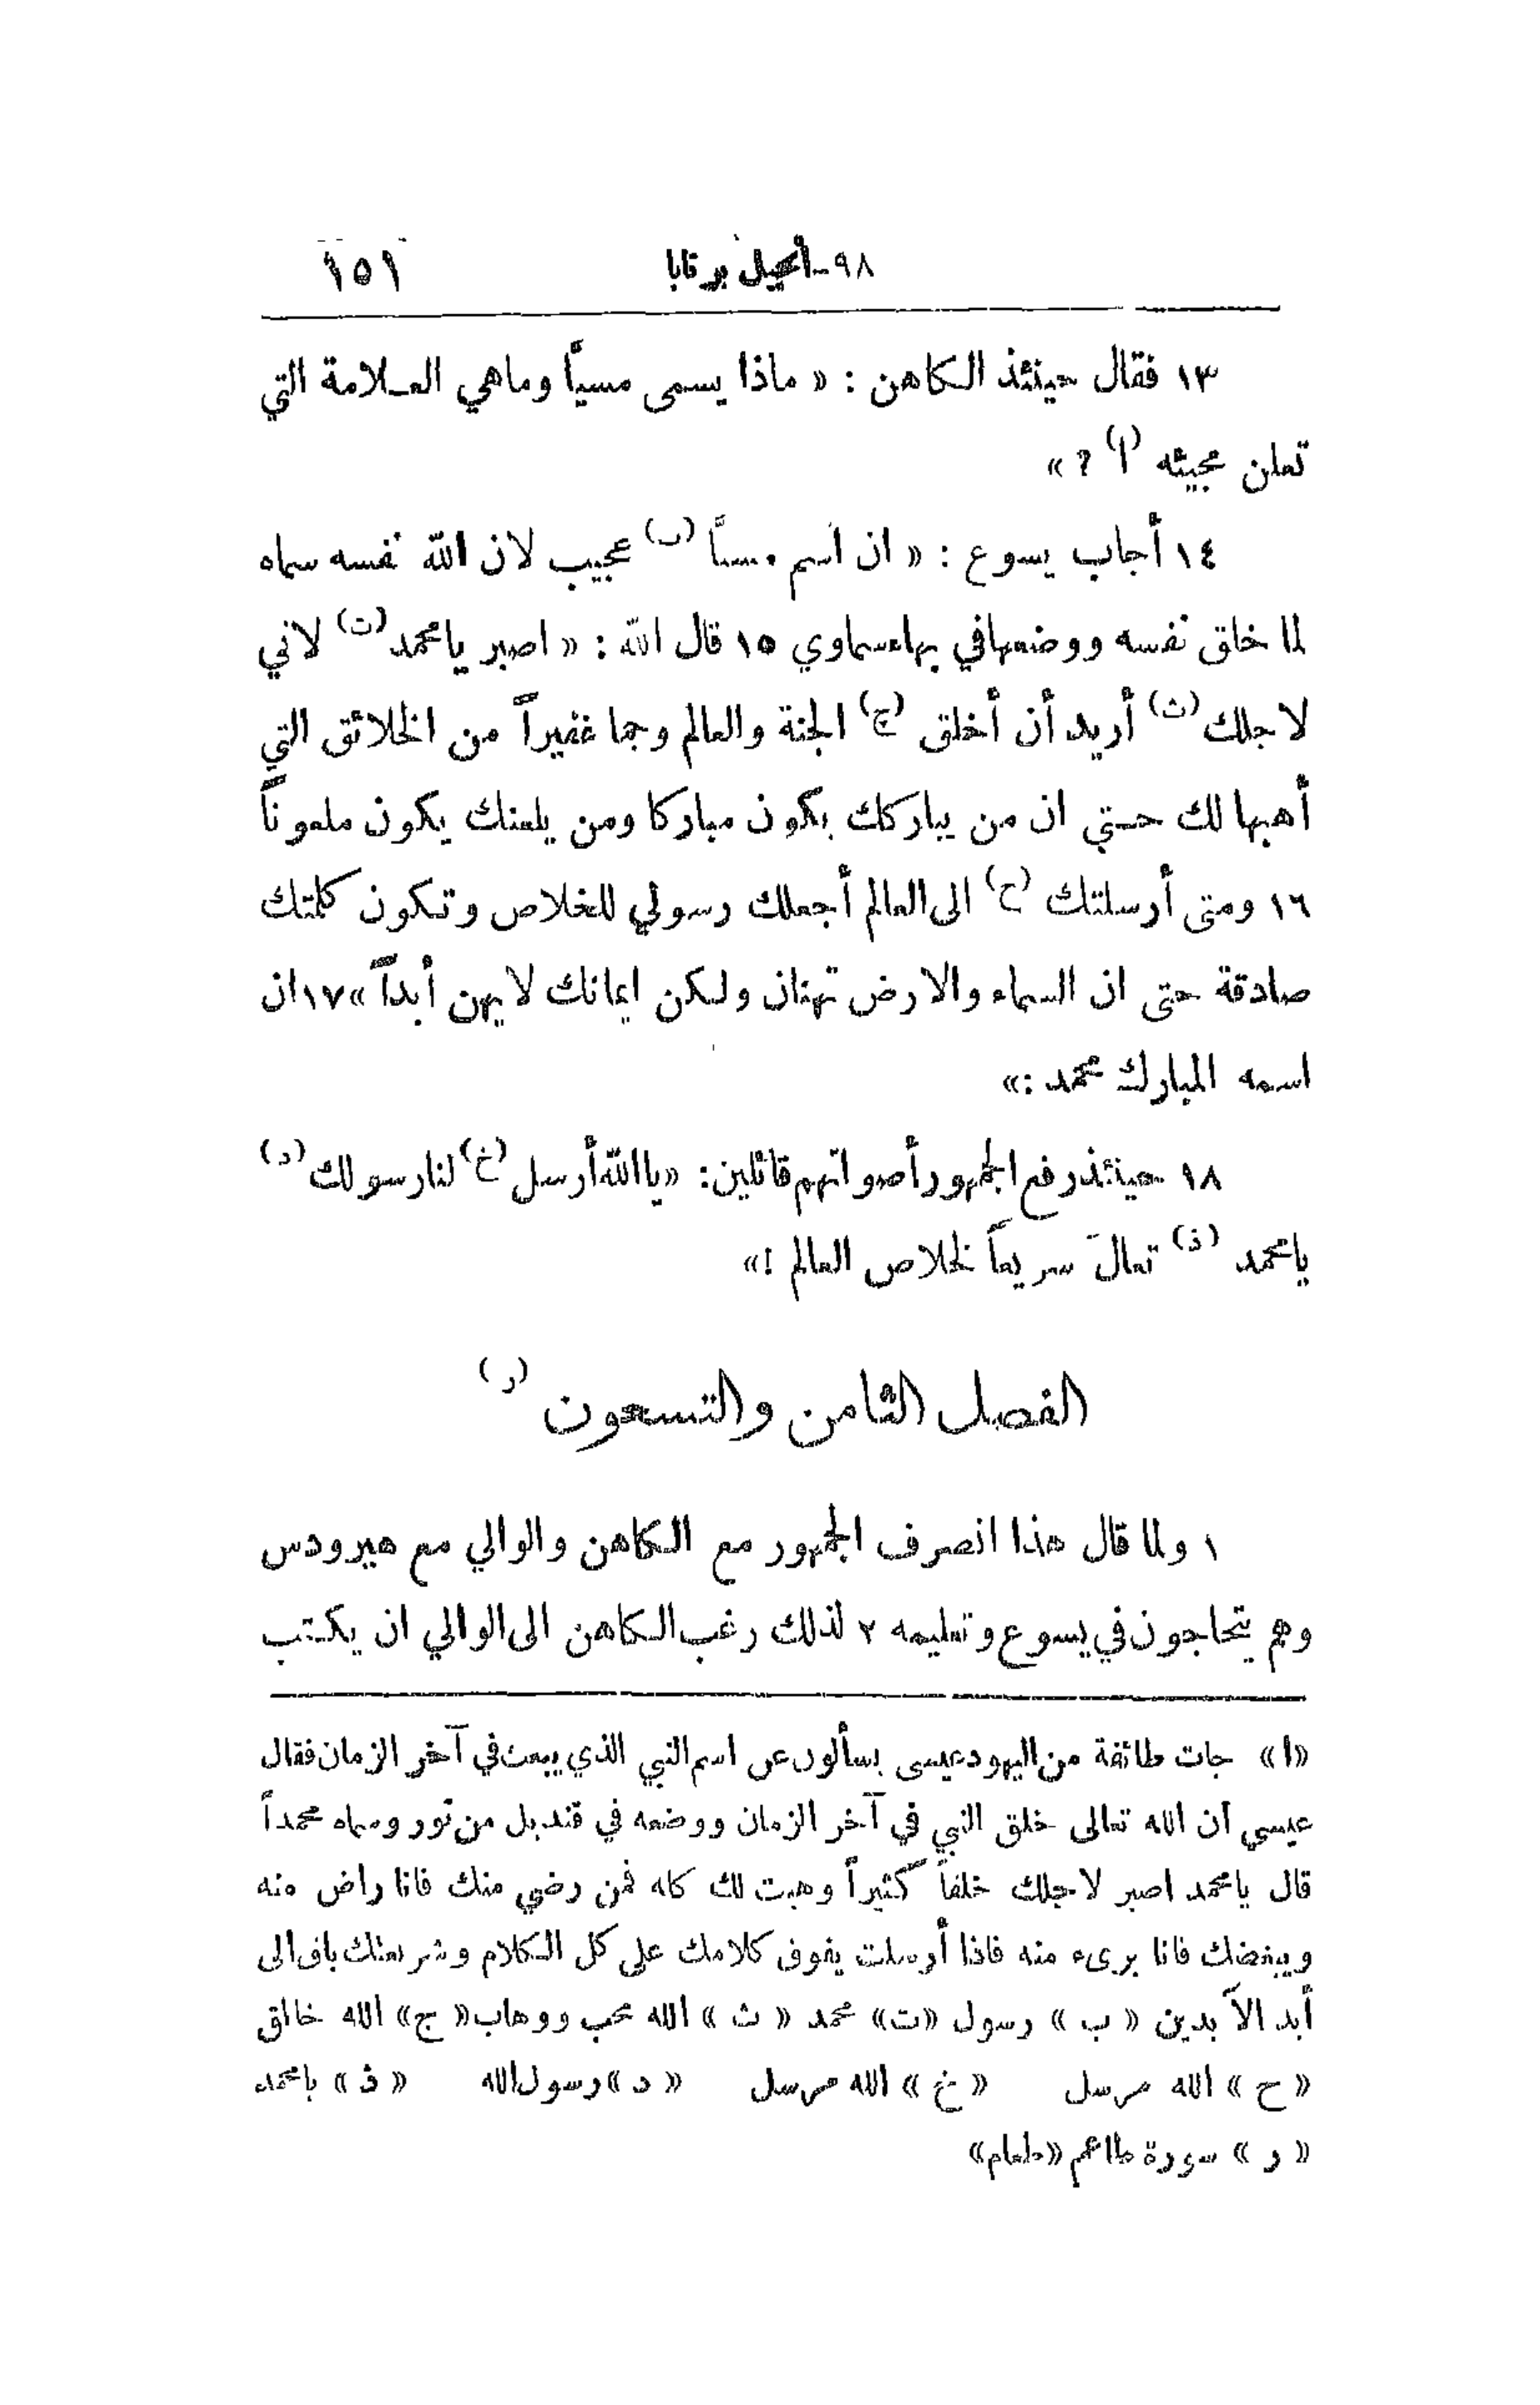 ٩٨-أنجيل برنابا ١٥١
١٣ فقال حينئذ الكاهن : « ماذا يسمى مسيّا وماهي العلامة التي
تعلن مجيئه (ا) ? »
١٤ أجاب يسوع : « ان اسم مسيّا (ب) عجيب لان الله نفسه سماه
لما خلق نفسه ووضعها في بهاء سماوي ١٥ قال الله : « اصبر يا محمد (ت) لاني
لاجلك (ث) أريد أن أخلق (ج) الجنة والعالم وجما غفيراً من الخلائق التي
أهبها لك حتي ان من يباركك يكون مباركا ومن يلعنك يكون ملعوناً
١٦ ومتى أرسلتك (ح) الى العالم أجعلك رسولي للخلاص وتكون كلمتك
صادقة حتى ان السماء والارض تهنان ولكن ايمانك لايهن أبداً » ١٧ ان
اسمه المبارك محمد :»
١٨ حينئذ رفع الجمهور أصواتهم قائلين: « ياالله أرسل (خ) لنا رسولك (د)
يامحمد (ذ) تعالَ سريعاً لخلاص العالم !»
الفصل الثامن والتسعون (ر)
١ ولما قال هذا انصرف الجمهور مع الكاهن والوالي مع هيرودس
وهم يتحاجون في يسوع وتعليمه ٢ لذلك رغب الكاهن الى الوالي ان يكتب
«ا» جات طائفة من اليهود عيسى يسألون عن اسم النبي الذي يبعث في آخر الزمان فقال
عيسي ان الله تعالى خلق النبي في آخر الزمان ووضعه في قنديل من نور وسماه محمداً
قال يامحمد اصبر لاجلك خلقاً كثيراً وهبت لك كله فمن رضي منك فانا راض منه
ويبغضك فانا برىء منه فاذا أرسلت يفوق كلامك علي كل الكلام وشريعتك باق الى
أبد الآبدين « ب » رسول «ت» محمد « ث » الله محب ووهاب « ج» الله خالق
« ح » الله مرسل « خ » الله مرسل « د » رسول الله « ذ » يامحمد
« ر » سورة طاعم «طعام»